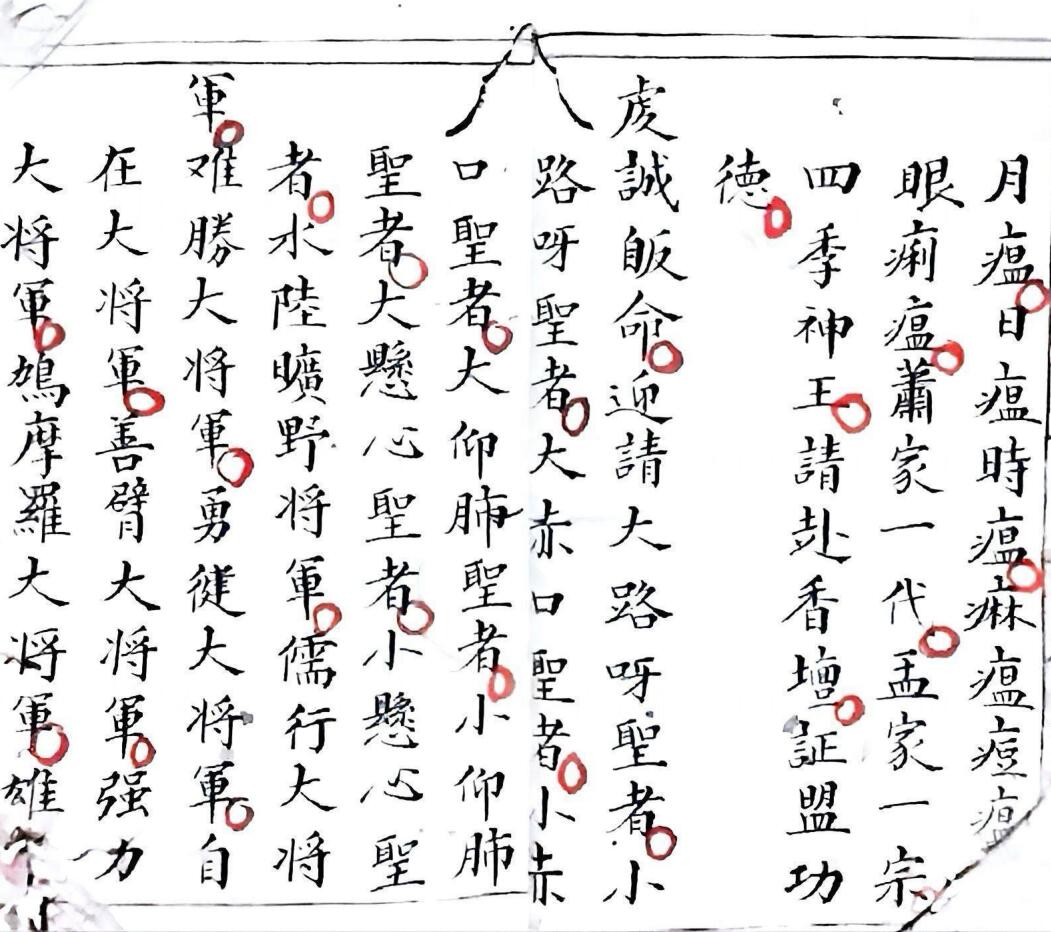 月瘟日瘟時瘟痳瘟痘瘟
眼痢瘟蕭家一代孟家一宗
四季神王請赴香壇証盟功
德
虔誠皈命迎請大路呀聖者小
路呀聖者大赤口聖者小赤
口聖者大仰肺聖者小仰肺
聖者大懸心聖者小懸心聖
者水陸曠野将軍儒行大将
軍难勝大将軍勇健大将軍自
在大将軍善臂大将軍强力
大将軍鳩摩羅大将軍雄